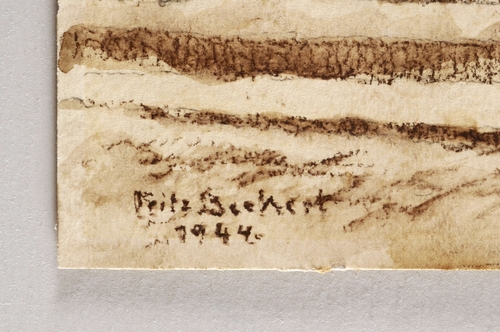 Fritz Beckert
1944.